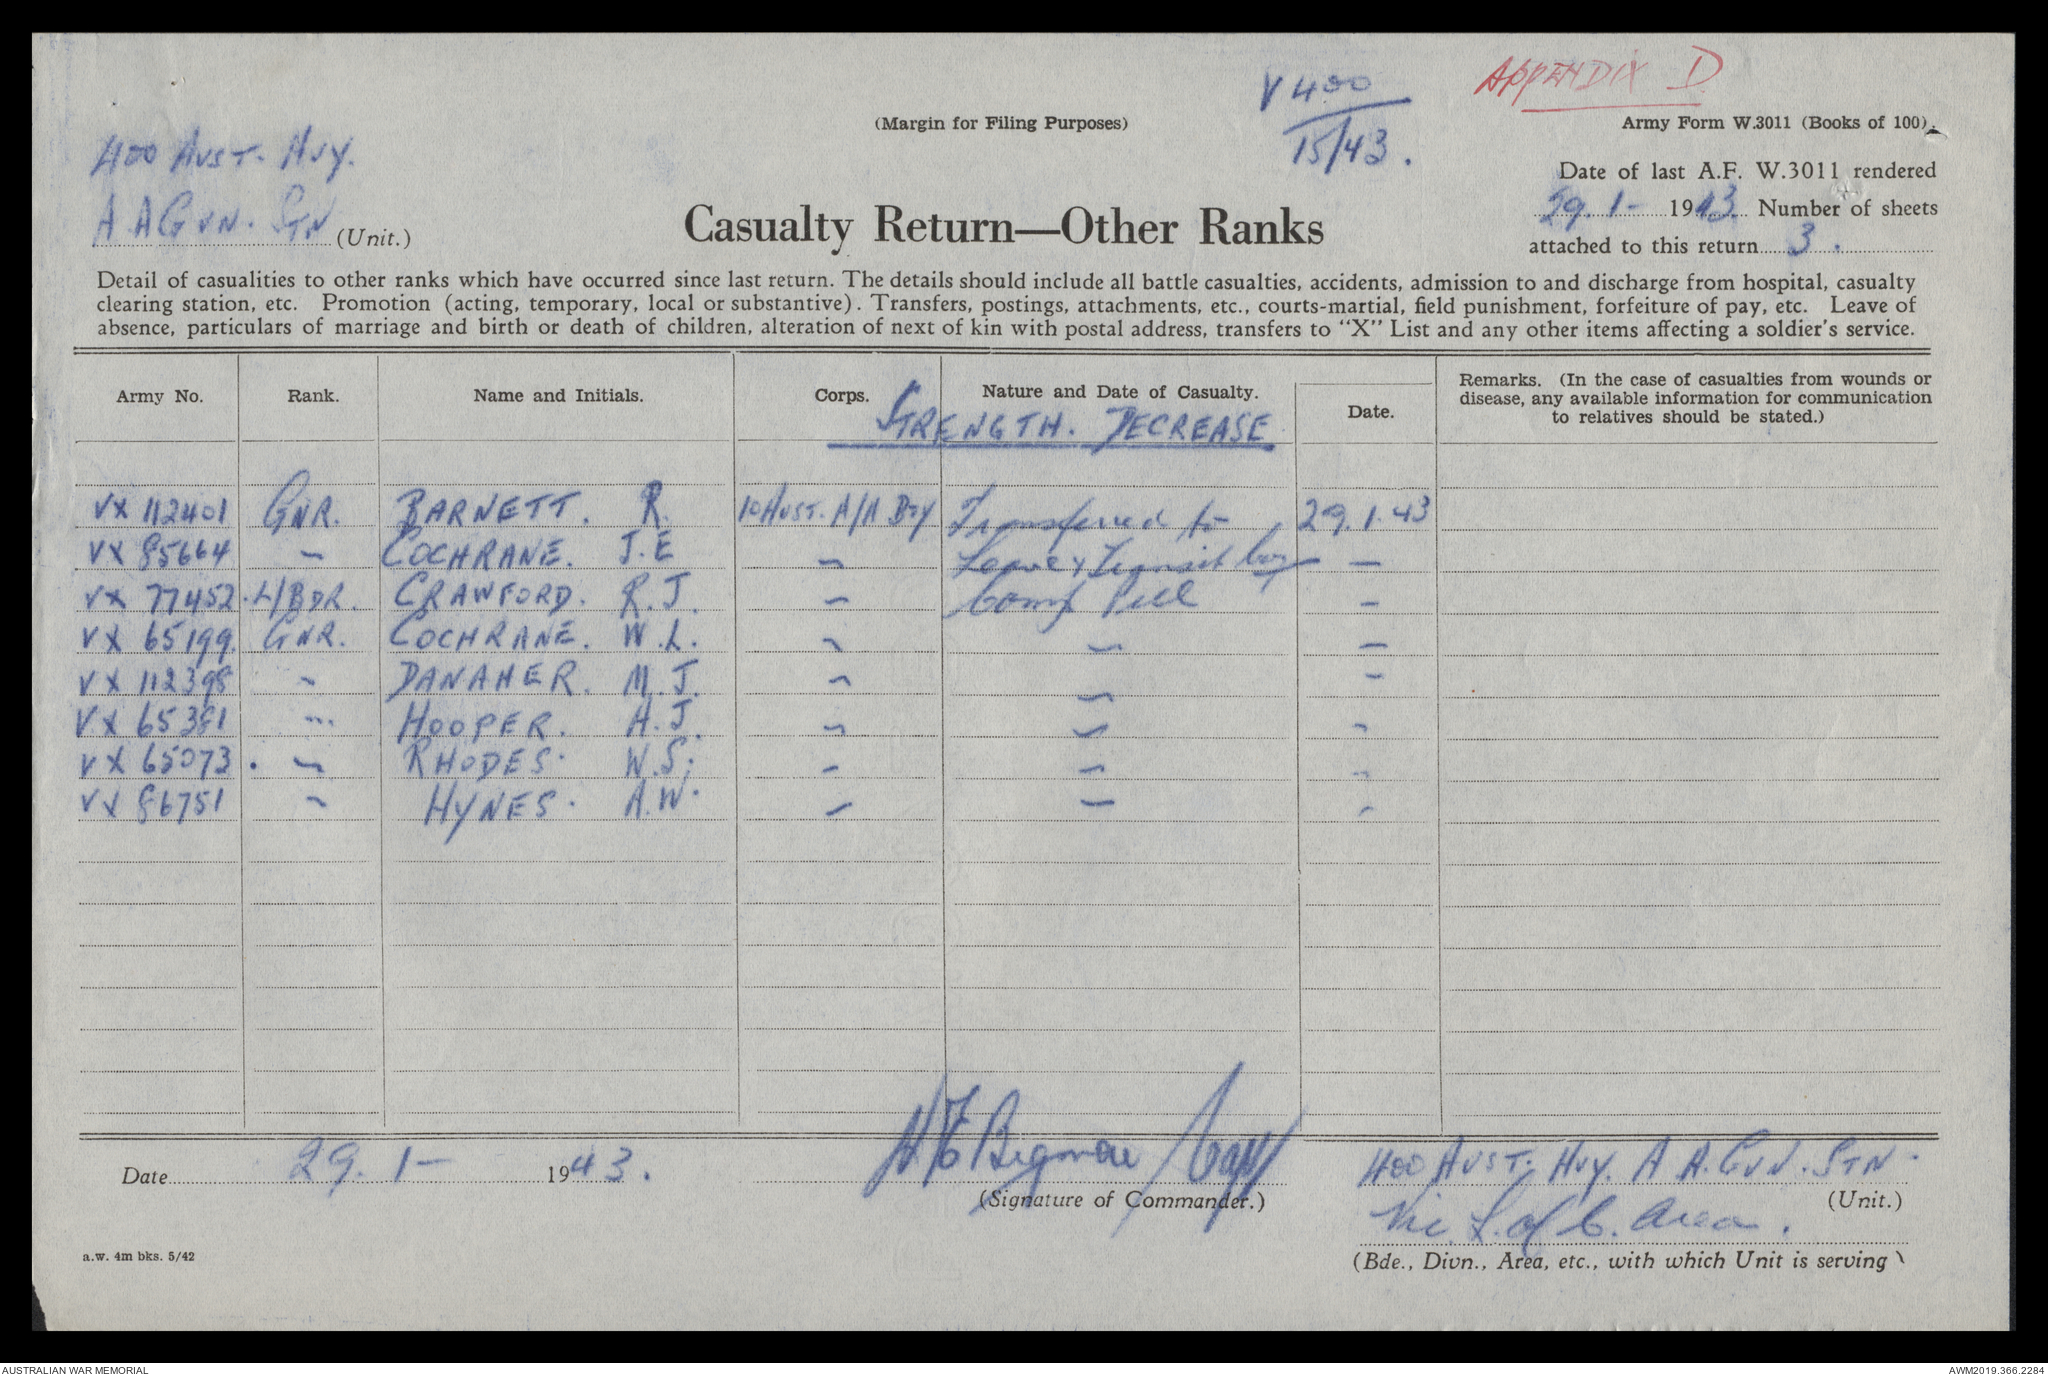 APPENDIX D
V 400
15/43.
(Margin for Filing Purposes)
Army Form W.3011 (Books of 100).
400 AUST. HVY.
A.A GUN. STN (Unit.)
Casualty Return—Other Ranks
Date of last A.F. W.3011 rendered
29. 1 - 1943 Number of sheets
attached to this return 3.
Detail of casualities to other ranks which have occurred since last return. The details should include all battle casualties, accidents, admission to and discharge from hospital, casualty
clearing station, etc. Promotion (acting, temporary, local or substantive). Transfers, postings, attachments, etc., courts-martial, field punishment, forfeiture of pay, etc. Leave of
absence, particulars of marriage and birth or death of children, alteration of next of kin with postal address, transfers to "X" List and any other items affecting a soldier's service.
Army No. Rank. Name and Initials. Corps. Nature and Date of Casualty. Date. Remarks. (In the case of casualties from wounds or
disease, any available information for communication
to relatives should be stated.)
STRENGTH. DECREASE
VX 112401 GNR. BARNETT. R. 10 AUST. A/A Bty Transferred to 29.1.43
VX 85664 " COCHRANE. J.E " Leave & Transit "
VX 77452 . L/BDR. CRAWFORD. R.J. " Camp "
VX 65199. GNR. COCHRANE. W.L. " " "
VX 112398 " DANAHER. M.J. " " "
VX 65381 " HOOPER. A.J. " " "
VX 65073 . " RHODES. W.S. " " "
VX 86751 " HYNES. A.W. " " "
Date 29. 1 - 1943.
(Signature of Commander.)
400 AUST. HVY. A A. GUN. STN.
(Unit.)
Vic L. of C. Area.
(Bde., Divn., Area, etc., with which Unit is serving)
a.w. 4m bks. 5/42
AUSTRALIAN WAR MEMORIAL
AWM2019.366.2284